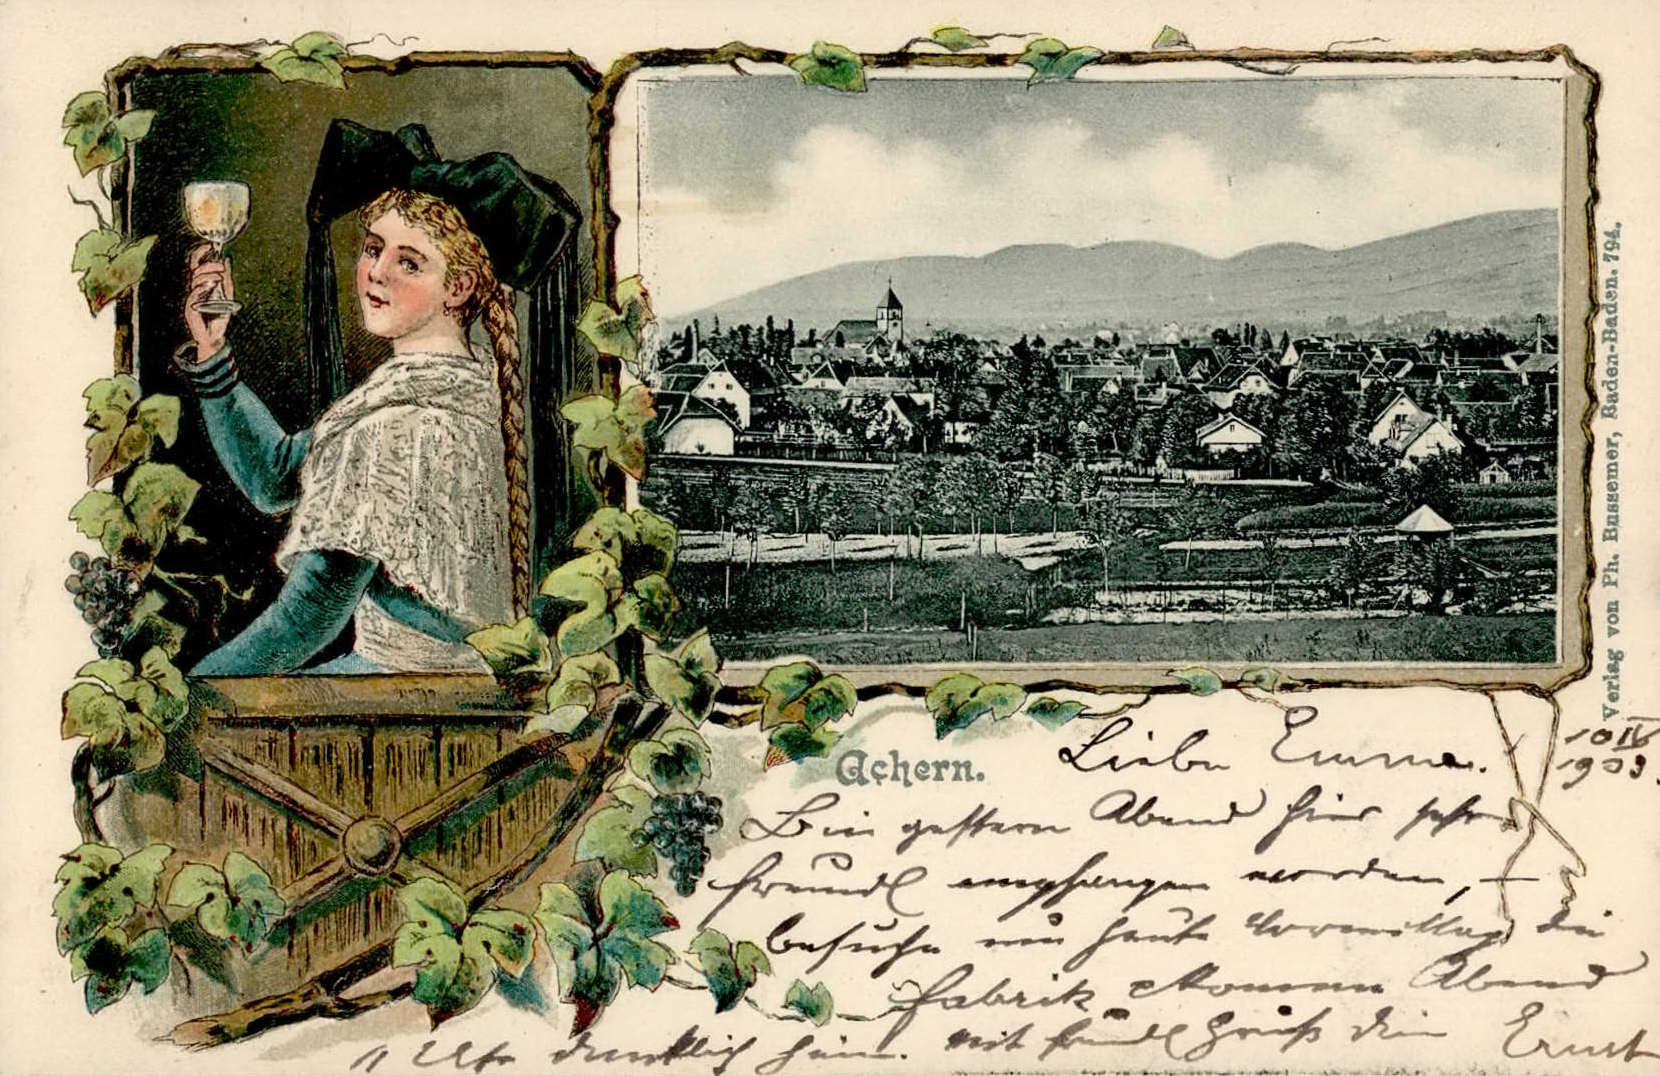 Achern.
Liebe Emma.
10 IV
1903.
Bin gestern Abend hier sehr
freundl empfangen worden, –
besuche nun heute Vormittag die
Fabrik komme Abend
11 Uhr heim. Mit freundl Gruß Dein Ernst
Verlag von Ph. Bussemer, Baden-Baden. 794.